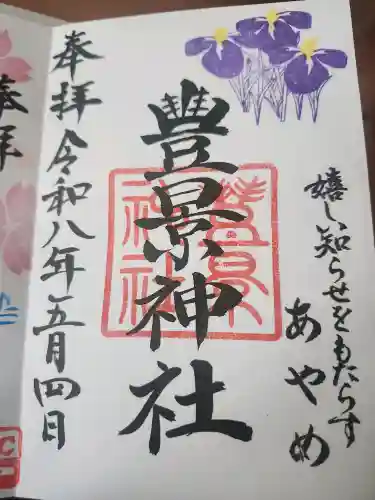 嬉しい知らせをもたらす
あやめ
豊景神社
豊景
神社
奉拝
令和八年五月四日
奉拝